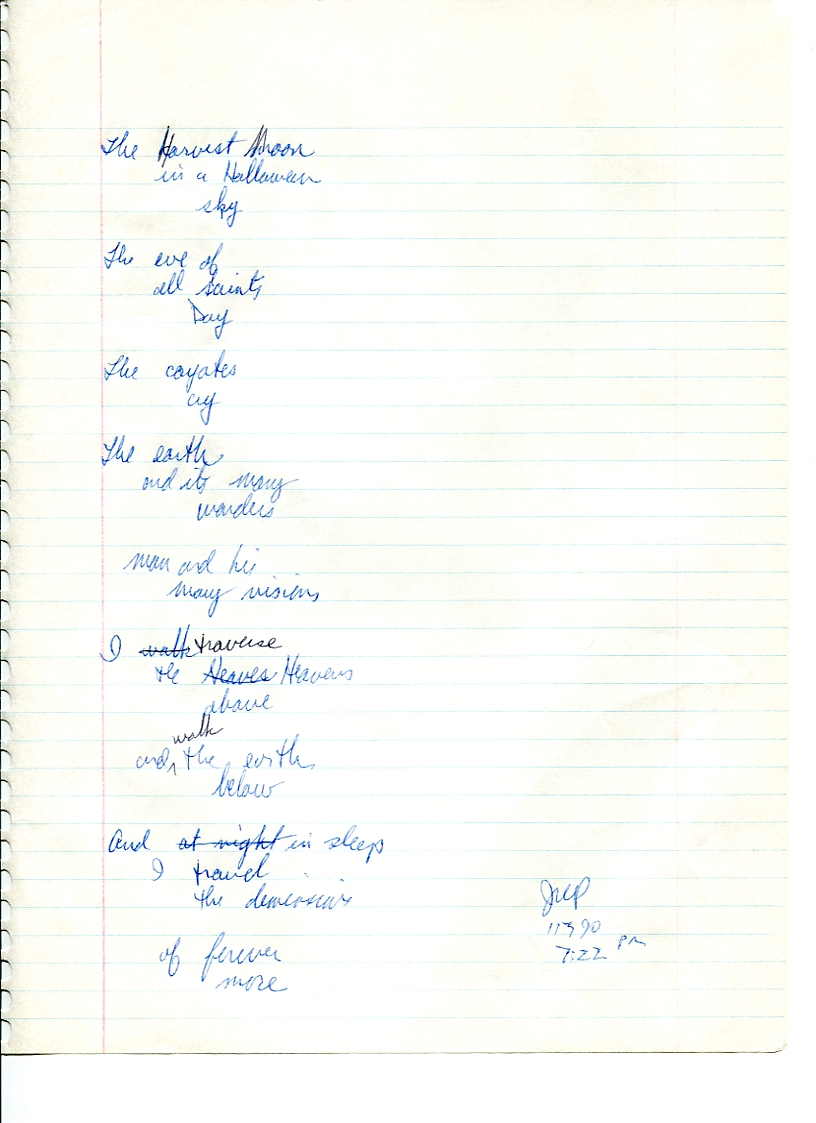 The Harvest Moon
in a Halloween
sky
The eve of
all Saints
Day
The coyotes
cry
The earth
and its many
wonders
man and his
many visions
I walk traverse
the Heaves Heavens
above
walk
and the earth
below
And at night in sleep
I travel
the dimensions
of forever
more
7:22 PM